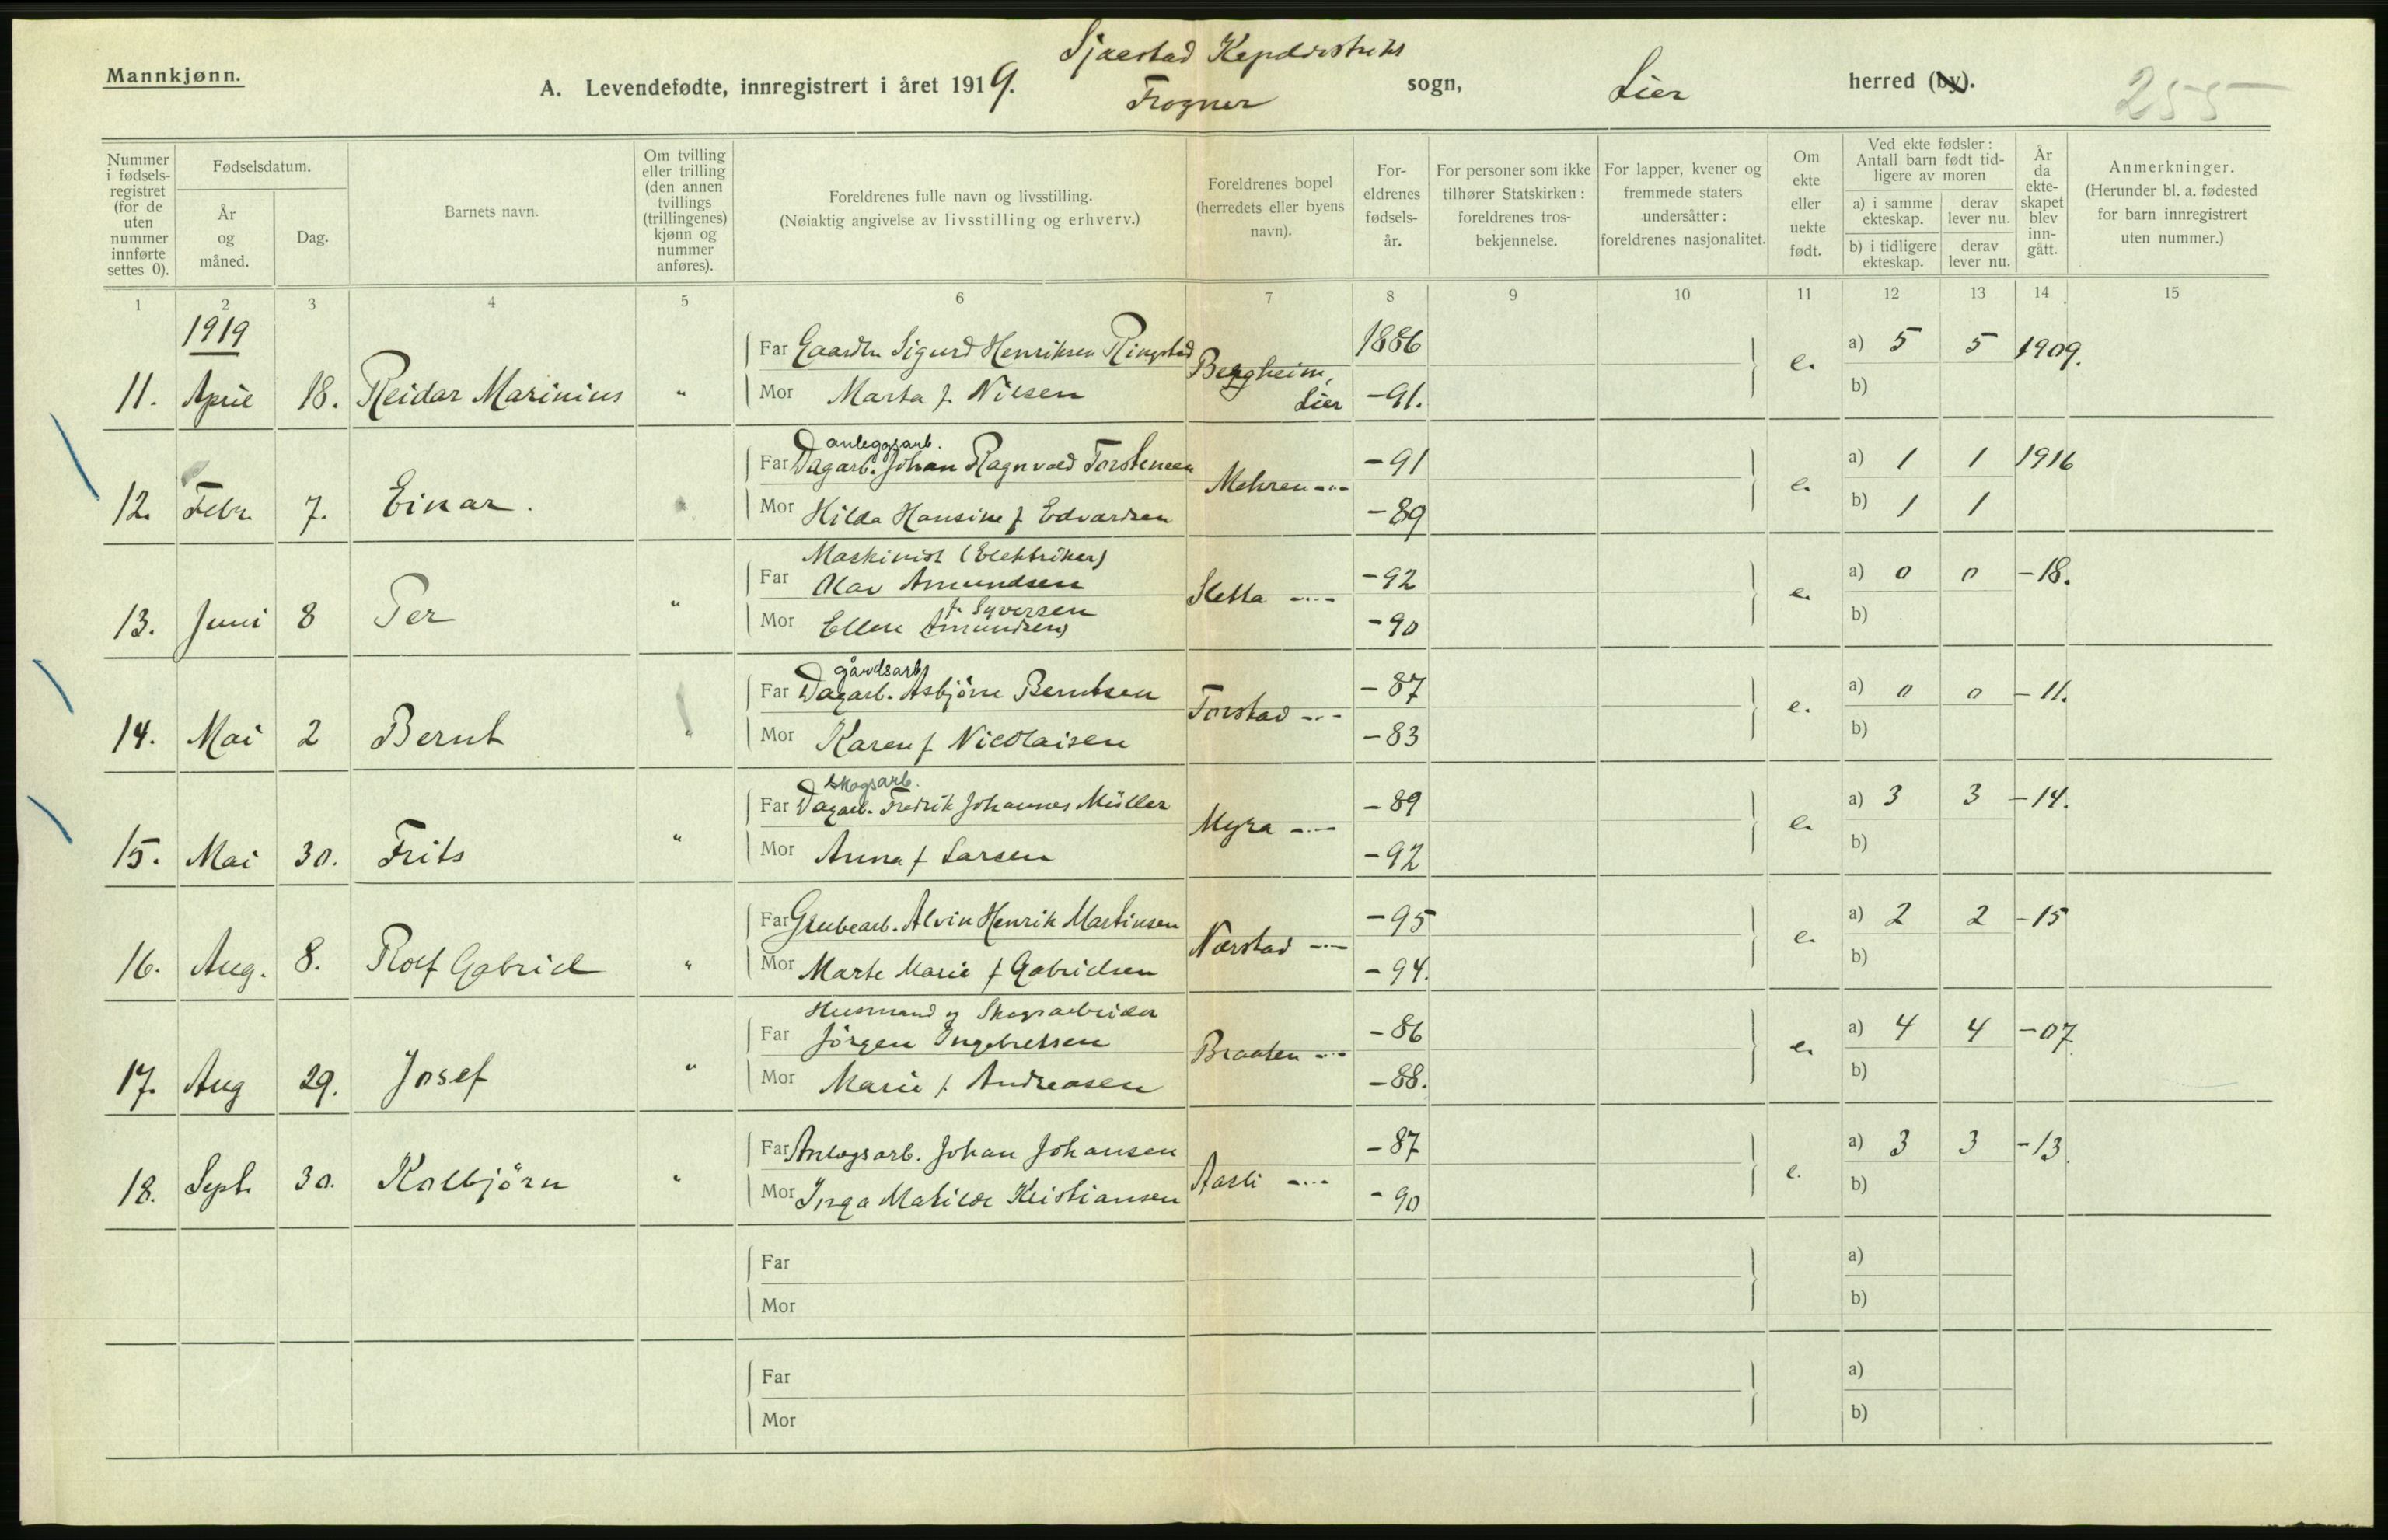 Mannkjønn.
A. Levendefødte, innregistrert i året 1919.
Sjaestad
Frogner
sogn,
Lier
herred (by).
255
Nummer i fødsels-registret (for de uten nummer innførte settes 0).
Fødselsdatum.
År og måned.
Dag.
Barnets navn.
Om tvilling eller trilling (den annen tvillings (trillingenes) kjønn og nummer anføres).
Foreldrenes fulle navn og livsstilling.
(Nøiaktig angivelse av livsstilling og erhverv.)
Foreldrenes bopel (herredets eller byens navn).
For-eldrenes fødsels-år.
For personer som ikke tilhører Statskirken: foreldrenes tros-bekjennelse.
For lapper, kvener og fremmede staters undersåtter: foreldrenes nasjonalitet.
Om ekte eller uekte født.
Ved ekte fødsler: Antall barn født tid-ligere av moren
a) i samme ekteskap.
derav lever nu.
b) i tidligere ekteskap.
derav lever nu.
År da ekte-skapet blev inn-gått.
Anmerkninger.
(Herunder bl. a. fødested for barn innregistrert uten nummer.)
1 2 3 4 5 6 7 8 9 10 11 12 13 14 15
1919
Far Gaardbr. Sigurd Henriksen Ringstad 1886 a) 5 5 1909.
11. April 18. Reidar Marinius " Bergheim, Lier e.
Mor Marta f. Nilsen -91. b)
anleggsarb.
Far Dagarb. Johan Ragnvald Torstensen -91 a) 1 1 1916
12. Febr. 7. Einar. " Mehren -"- e.
Mor Hilda Hansine f. Edvardsen -89 b) 1 1
Maskinist (Elektriker)
Far Olav Amundsen -92 a) 0 0 -18.
13. Juni 8 Per " Sletta -"- e.
f. Syversen
Mor Ellen (Amundsen) -90 b)
gårdsarb
Far Dagarb. Asbjörn Berntsen -87 a) 0 0 -11.
14. Mai 2 Bernt " Torstad -"- e.
Mor Karen f. Nicolaisen -83 b)
skogsarb.
Far Dagarb. Fredrik Johannes Müller -89 a) 3 3 -14.
15. Mai 30. Frits " Myra -"- e.
Mor Anna f Larsen -92 b)
Far Grubearb. Alvin Henrik Martinsen -95 a) 2 2 -15
16. Aug. 8. Rolf Gabriel " Nærstad -"- e.
Mor Marte Marie f Gabrielsen -94. b)
Husmand og Skogsarbeider
Far Jörgen Ingebretsen -86 a) 4 4 -07.
17. Aug 29. Josef " Braaten -"- e.
Mor Marie f. Andreasen -88. b)
Far Anlegsarb. Johan Johansen -87 a) 3 3 -13.
18. Sept. 30. Kolbjörn " Aasli -"- e.
Mor Inga Matilde Kristiansen -90 b)
Far a)
Mor b)
Far a)
Mor b)